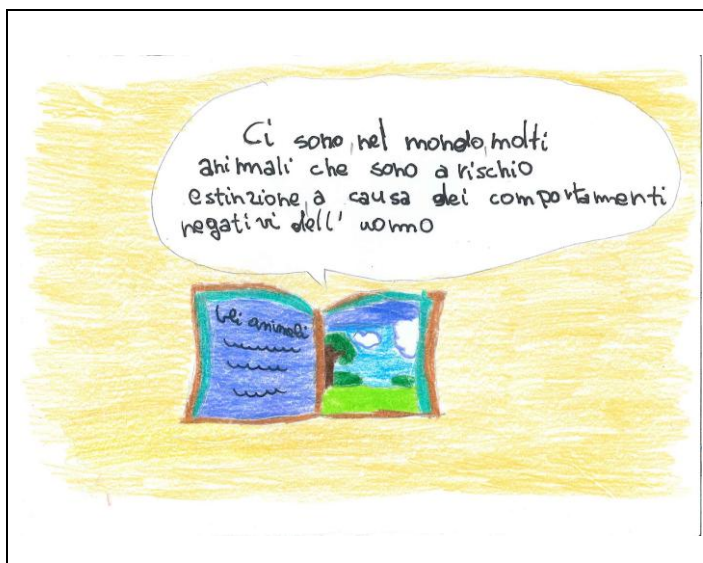 Ci sono, nel mondo, molti
animali che sono a rischio
estinzione, a causa dei comportamenti
negativi dell' uomo
Gli animali